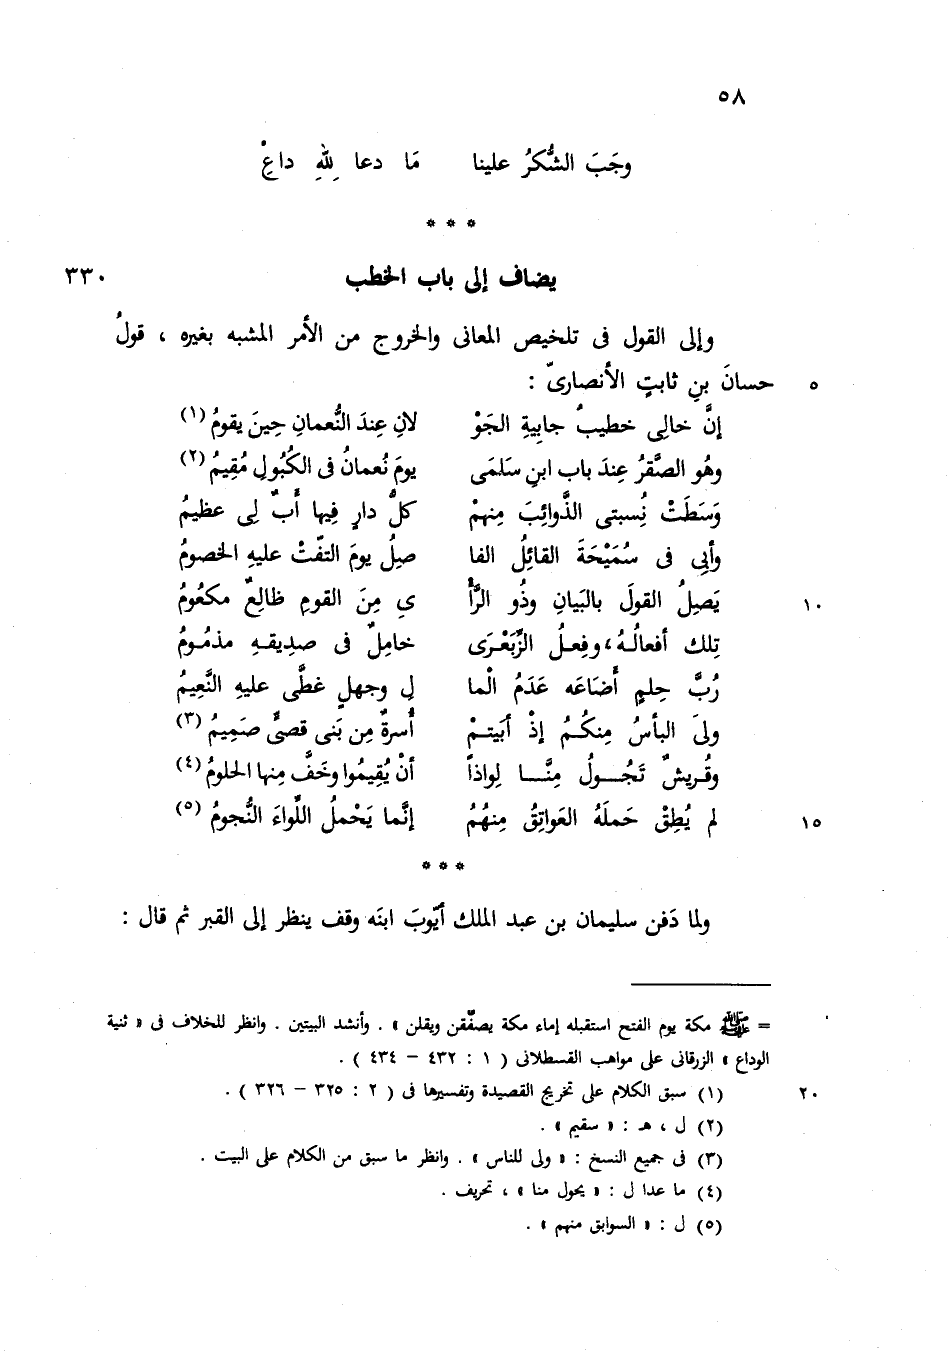 ٥٨
وجَبَ الشُّكرُ علينا مَا دعا لِلّٰهِ داعْ
* * *
يضاف إلى باب الخطب ٣٣٠
وإلى القول فى تلخيص المعانى والخروج من الأمر المشبه بغيره ، قولُ
حسانَ بنِ ثابتٍ الأنصارىّ : ٥
إنَّ خالِى خطيبُ جابِيةِ الجَوْ لانِ عِندَ النُّعمانِ حِينَ يقومُ (١)
وهُو الصَّقرُ عِندَ باب ابنِ سَلمَى يومَ نُعمانُ فى الكُبُولِ مُقِيمُ (٢)
وَسَطَتْ نُِسبتى الذَّوائِبَ مِنهمْ كلُّ دارٍ فِيها أبٌ لِى عظيمُ
وأبِى فى سُمَيْحَةَ القائِلُ الفا صِلُ يومَ التفّتْ عليهِ الخصومُ
يَصِلُ القولَ بالبَيانِ وذُو الرَّأْ ىِ مِنَ القومِ ظالِعٌ مكعُومُ ١٠
تِلك أفعالُهُ، وفِعلُ الزِّبَعْرَى خامِلٌ فى صدِيقهِ مذمُومُ
رُبَّ حِلمٍ أَضَاعَه عَدَمُ الْما لِ وجهلٍ غطَّى عليهِ النَّعِيمُ
ولىَ البأسُ مِنكُمُ إذْ أبَيتمْ أُسرةٌ مِن بَنى قصىٍّ صَمِيمُ (٣)
وقُريشٌ تَجُولُ مِنَّا لِواذاً أنْ يُقِيمُوا وخَفَّ مِنها الحلومُ (٤)
لم يُطِقْ حَملَهُ العَواتِقُ مِنهُمُ إنَّما يَحْملُ اللِّواءَ النُّجومُ (٥) ١٥
* * *
ولما دَفن سليمان بن عبد الملك أيّوبَ ابنَه وقف ينظر إلى القبر ثم قال :
= ﷺ مكة يوم الفتح استقبله إماء مكة يصفّقن ويقلن » . وأنشد البيتين . وانظر للخلاف فى « ثنية
الوداع » الزرقانى على مواهب القسطلانى ( ١ : ٤٣٢ – ٤٣٤ ) .
(١) سبق الكلام على تخريج القصيدة وتفسيرها فى ( ٢ : ٣٢٥ – ٣٢٦ ) . ٢٠
(٢) ل ، هـ : « سقيم » .
(٣) فى جميع النسخ : « ولى للناس » . وانظر ما سبق من الكلام على البيت .
(٤) ما عدا ل : « يحول منا » ، تحريف .
(٥) ل : « السوابق منهم » .